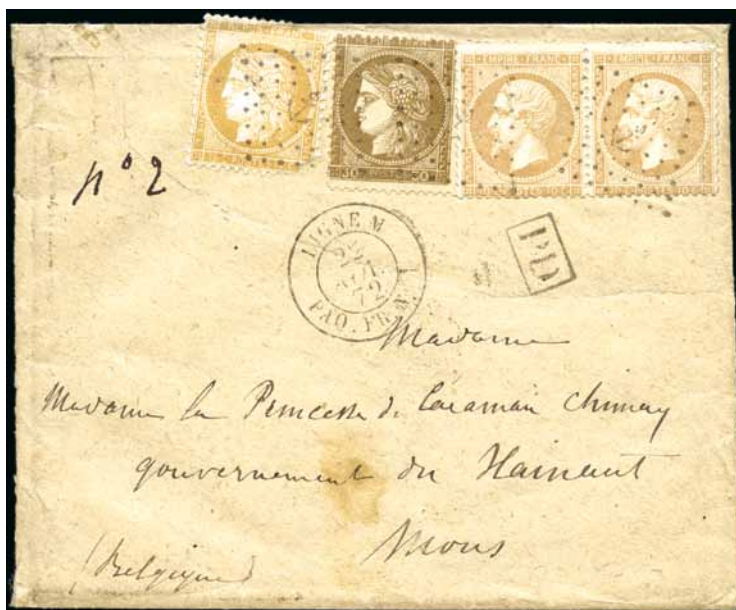 EMPIRE FRANC EMPIRE FRANC
30 30
n° 2
LIGNE M
72
PAQ. FR. N 1
PD
Madame
Madame la Princesse de Caraman Chimay
gouvernement du Hainaut
Mons
(Belgique)